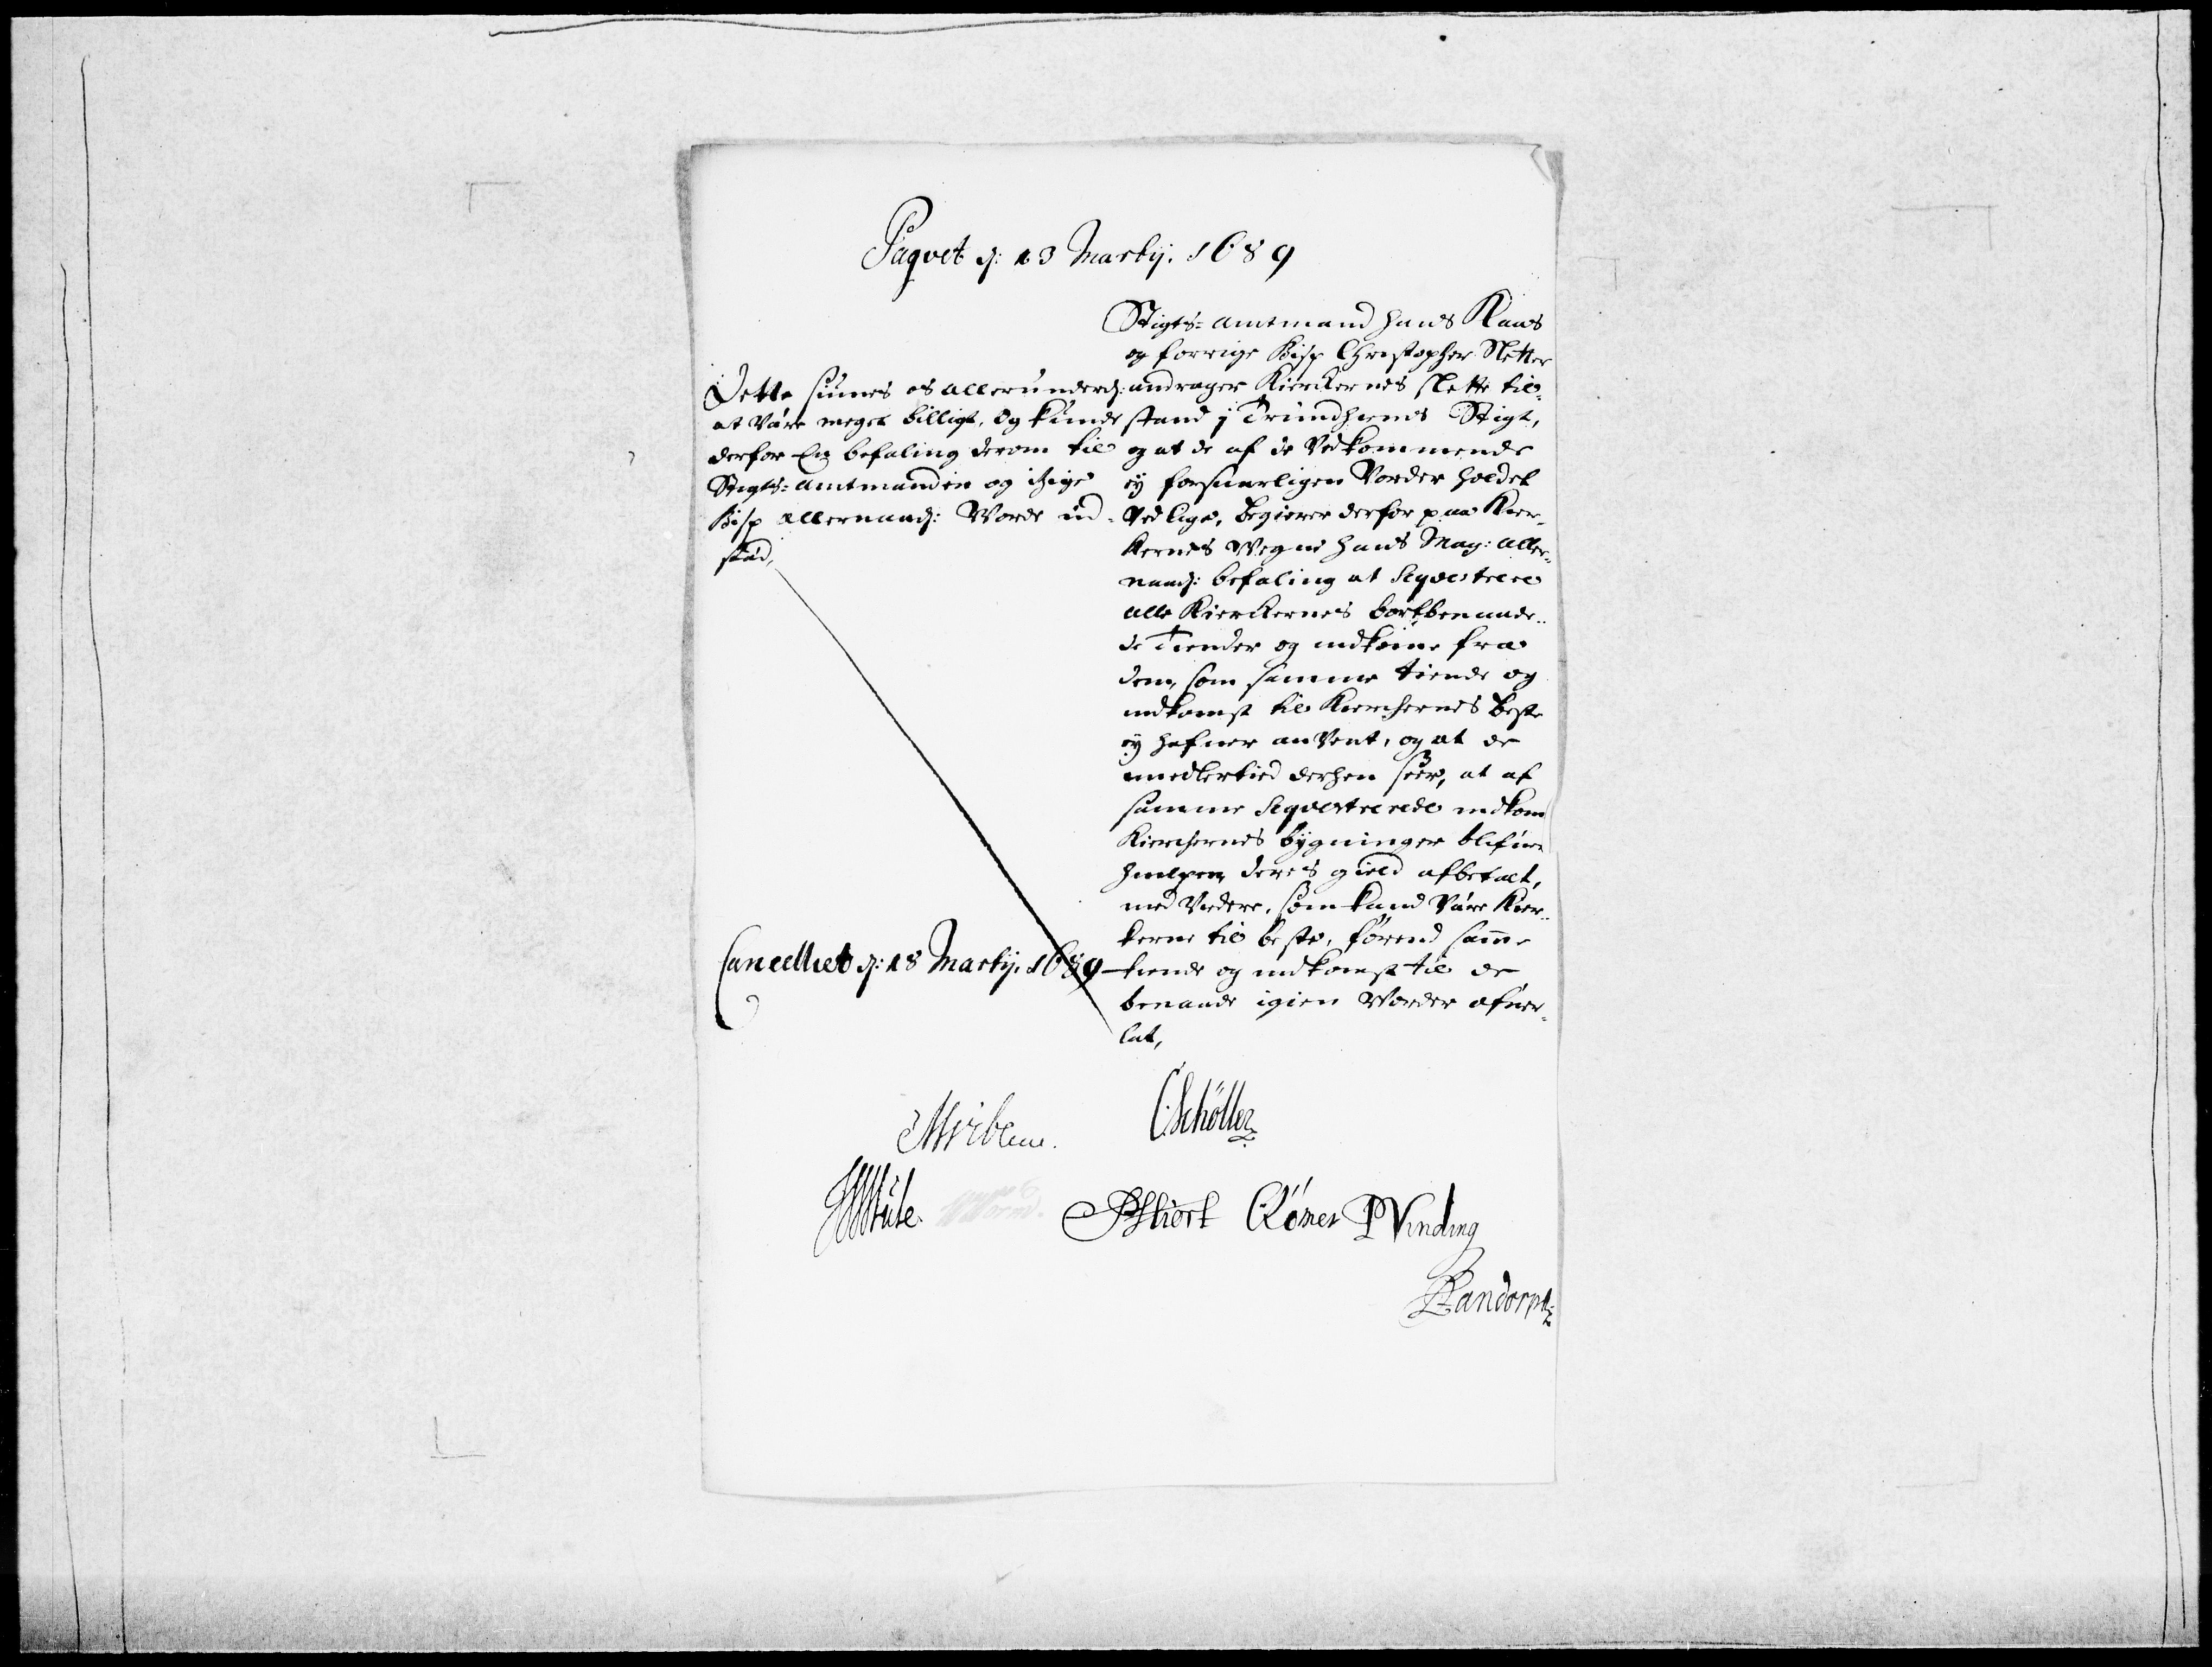 Paqvet d: 13 Martij. 1689
Stigts-amtmand Hans Kaas
og forrige Bisp Christopher Sletter
andrager Kierckernes slette til-
stand j Trundhiems Stigt,
og at de af de Vedkommende
ej forsvarligen Vorder holdet
Ved lige, begierer derfor paa Kier-
kernes Wegne Hans May: aller-
naad: befaling at Seqvestrere
alle Kierckernes bortbenaade-
de Tiender og indkome fra
dem, som samme tiende og
indkomst til Kierchernes beste
ej hafuer anVent, og at de
imidlertied derhen seer, at af
samme Seqvestrerede indkom
Kierchernes bygninger blifuer
hiulpen, deres gield afbetalt,
med Videre, som kand Være Kier-
kerne til beste, førend samme
tiende og indkomst til de
benaade igien Worder ofuer-
lat,
Dette siunes os allerunderd:
at Være meget billigt, og kunde
derfor En befaling derom til
Stigts-amtmanden og itzige
Bisp allernaad: Worde ud-
stæd,
Cancelliet d: 18 Martij. 1689
C Schöller
PVinding